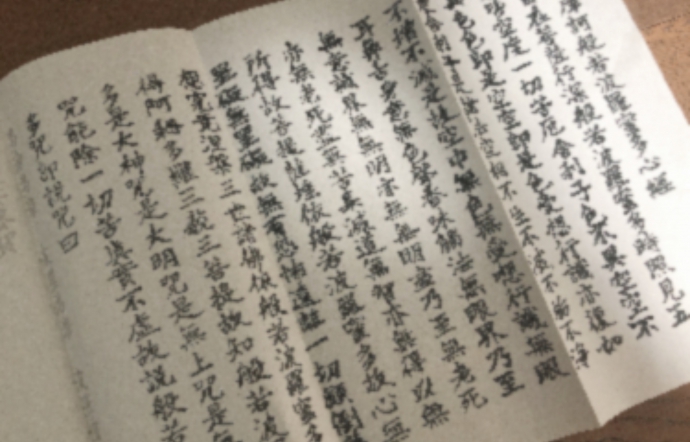 摩訶般若波羅蜜多心經
自在菩薩行深般若波羅蜜多時照見五
皆空度一切苦厄舍利子色不異空空不
異色色即是空空即是色受想行識亦復如
是舍利子是諸法空相不生不滅不垢不淨
不增不減是故空中無色無受想行識無眼
耳鼻舌身意無色聲香味觸法無眼界乃至
無意識界無無明亦無無明盡乃至無老死
亦無老死盡無苦集滅道無智亦無得以無
所得故菩提薩埵依般若波羅蜜多故心無
罣礙無罣礙故無有恐怖遠離一切顛倒
想究竟涅槃三世諸佛依般若波羅蜜多
得阿耨多羅三藐三菩提故知般若波
多是大神咒是大明咒是無上咒是無
咒能除一切苦真實不虛故說般若
多咒即說咒曰